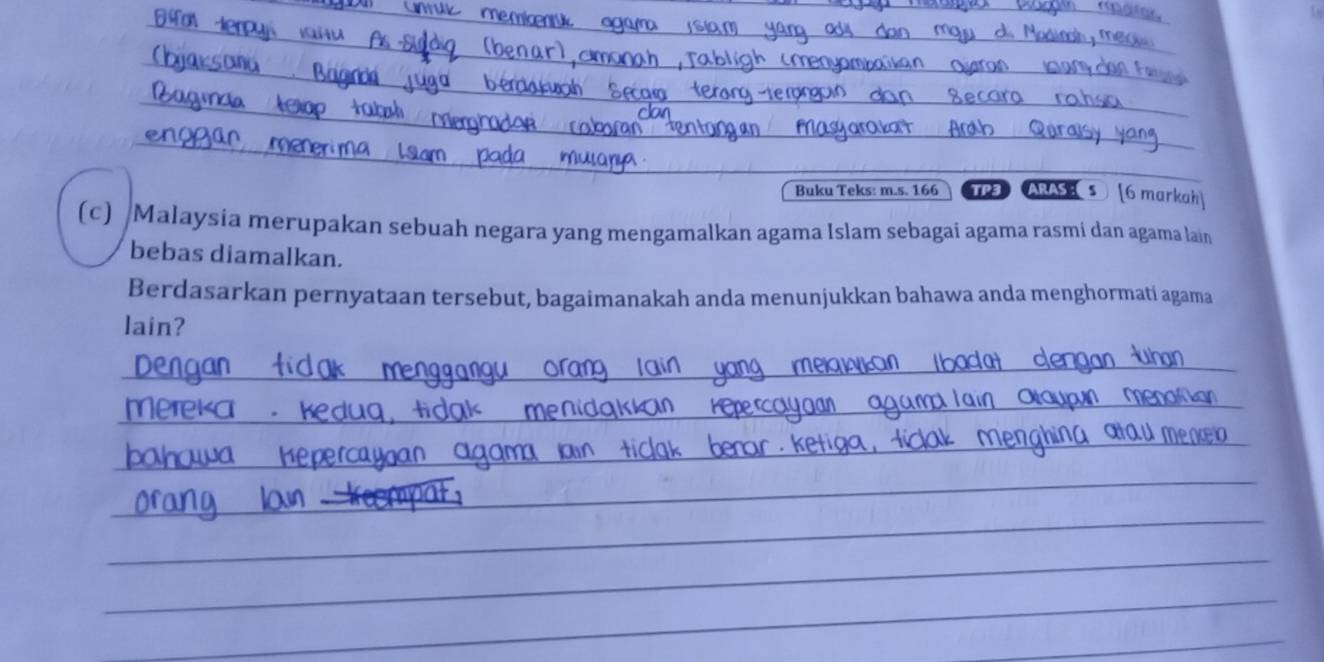 untuk agama Islam yang dan di Madinah,
sifat terpuji iaitu As-siddiq (benar), amanah, tabligh (menyampaikan dan
(bijaksana). Baginda juga berdakwah secara terang-terangan dan secara rahsia
Baginda tetap tabah menghadapi cabaran dan tentangan masyarakat Arab Quraisy yang
enggan menerima Islam pada mulanya.
Buku Teks: m.s. 166 TP3 ARAS : S [6 markah]
(c) Malaysia merupakan sebuah negara yang mengamalkan agama Islam sebagai agama rasmi dan agama lain
bebas diamalkan.
Berdasarkan pernyataan tersebut, bagaimanakah anda menunjukkan bahawa anda menghormati agama
lain?
Dengan tidak menggangu orang lain yang melakukan ibadat dengan tuhan
mereka. Kedua, tidak menidakkan kepercayaan agama lain ataupun menafikan
bahawa kepercayaan agama lain tidak benar. Ketiga, tidak menghina atau mencela
orang lain keempat,